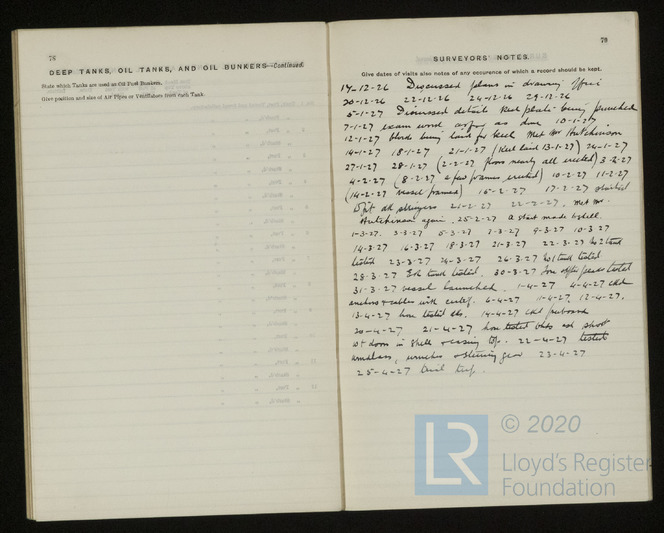 76
DEEP TANKS, OIL TANKS, AND OIL BUNKERS—Continued
State which Tanks are used as Oil Fuel Bunkers.
Give position and size of Air Pipes or Ventilators from each Tank.
79
SURVEYORS' NOTES.
Give dates of visits also notes of any occurence of which a record should be kept.
17-12-26 Discussed plans in drawing office
20-12-26 22-12-26 24-12-26 29-12-26
5-1-27 Discussed details Keel plate being punched
7-1-27 exam as far as done 10-1-27
12-1-27 blocks being laid for keel Met Mr Hutchinson
14-1-27 18-1-27 21-1-27 (Keel laid 13-1-27) 24-1-27
27-1-27 28-1-27 (2-2-27 floors nearly all erected) 3-2-27
4-2-27 (8-2-27 a few frames erected) 10-2-27 11-2-27
(14-2-27 vessel framed) 16-2-27 17-2-27 started
dk stringers 21-2-27 22-2-27. Met Mr.
Hutchinson again. 25-2-27 A start made
1-3-27. 3-3-27 5-3-27 7-3-27 9-3-27 10-3-27
14-3-27 16-3-27 18-3-27 21-3-27 22-3-27 No 2 tank
tested 23-3-27 24-3-27 26-3-27 No 1 tank tested
28-3-27 tank tested. 30-3-27 peak tested
31-3-27 vessel launched. 1-4-27 4-4-27
anchors & cables with certif. 6-4-27 11-4-27 12-4-27.
13-4-27 hose tested 14-4-27 freeboard
20-4-27 21-4-27 hose tested
wt doors in shell & casing tops. 22-4-27 tested
windlass, winches & steering gear 23-4-27
25-4-27 trial trip.
LR
© 2020
Lloyd's Register
Foundation